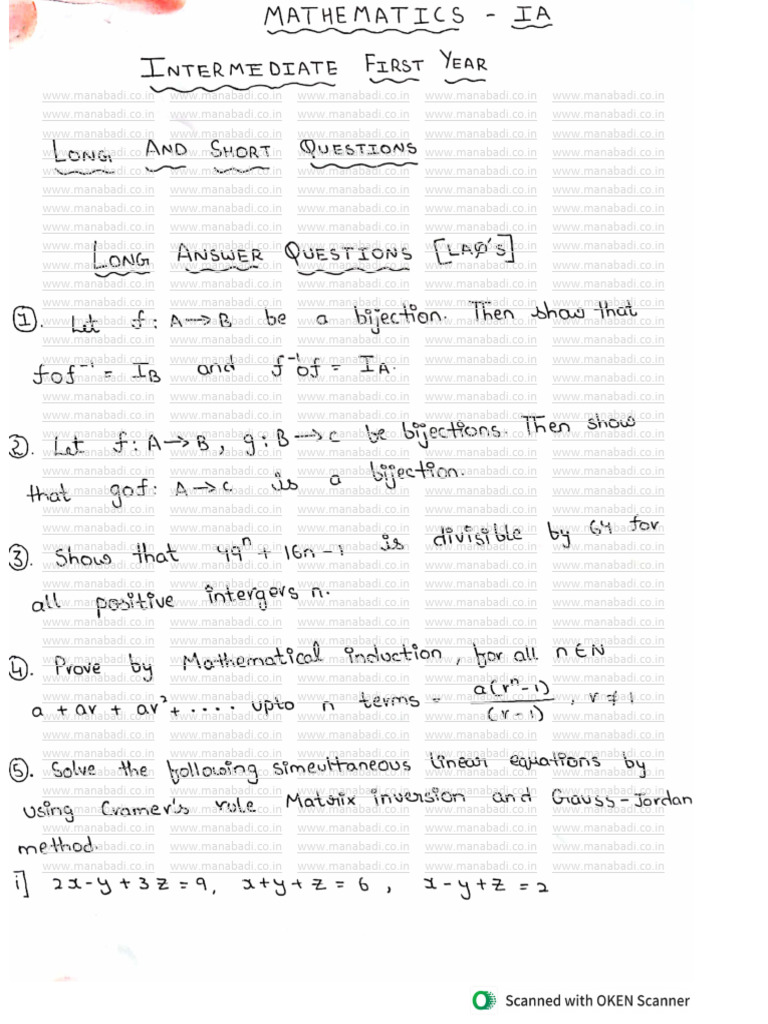 MATHEMATICS - IA
INTERMEDIATE FIRST YEAR
LONG AND SHORT QUESTIONS
LONG ANSWER QUESTIONS [LAQ'S]
①. Let f: A→B be a bijection. Then show that
fof⁻¹ = I_B and f⁻¹of = I_A.
②. Let f: A→B, g: B→C be bijections. Then show
that gof: A→C is a bijection.
③. Show that 49ⁿ + 16n - 1 is divisible by 64 for
all positive intergers n.
④. Prove by Mathematical induction, for all n ∈ N
a + ar + ar² + .... upto n terms = a(rⁿ-1)/(r-1), r ≠ 1
⑤. Solve the following simeultaneous linear equations by
using Cramer's rule Matrix inversion and Gauss-Jordan
method.
i] 2x-y+3z=9, x+y+z=6, x-y+z=2
www.manabadi.co.in
Scanned with OKEN Scanner